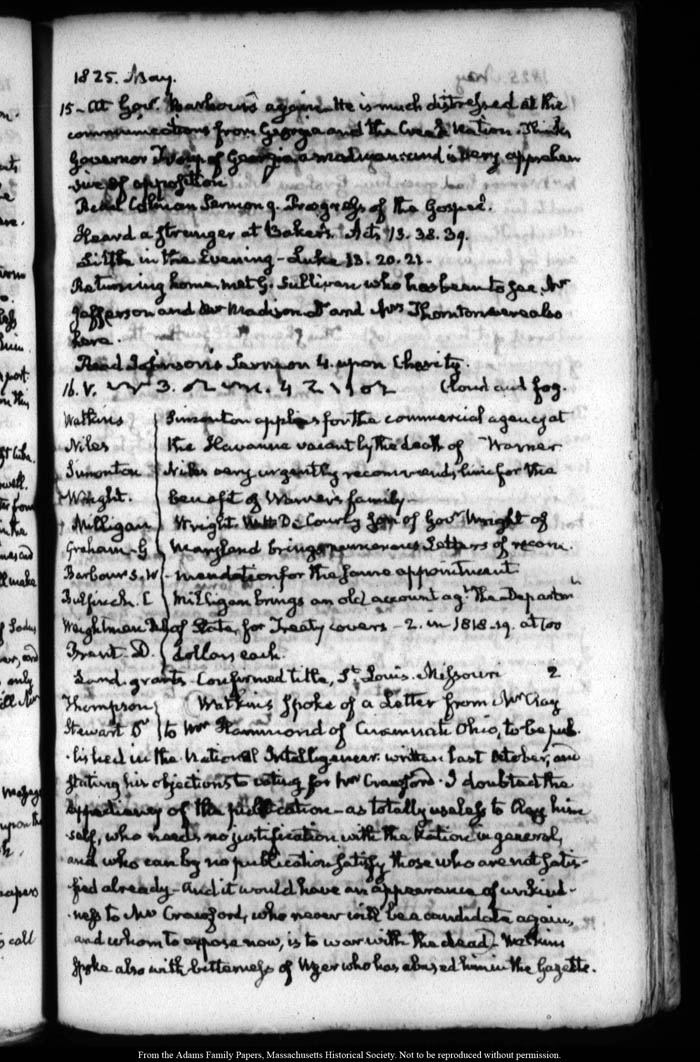 1825. May.
15 - At Govr. Barbour's again - He is much distressed at the
communications from Georgia and the Creek Nation. Thinks
Governor Troup of Georgia a madman: and is very apprehen
sive of opposition
Read Calman Sermon 9. Progress of the Gospel.
Heard a stranger at Baker's Acts 13. 38. 39.
Little in the Evening - Luke 13. 20. 21 -
Returning home. met G. Sullivan who has been to see Mr
Jefferson and Mr Madison. Dr and Mrs Thornton were also
here.
Read Johnson's Sermon 4. upon Charity.
16. V. Cloud and fog.
Watkins Simonton applies for the commercial agency at
Niles the Havanna vacant by the death of Warner
Simonton Niles very urgently recommends him for the
Wright. benefit of Warner's family -
Milligan Wright De Courcy Son of Govr Wright of
Graham - G Maryland brings numerous Letters of recom.
Barbour S. W - mendation for the same appointment
Bulfinch. C Milligan brings an old account agt. the Departmt
Weightman of State, for Treaty covers - 2. in 1818 - 19. at 100
Brent D. dollars each.
Land-grants Confirmed title, St. Louis. Missouri 2
Thompson Watkins spoke of a Letter from Mr Clay
Stewart Dr to Mr Hammond of Cincinnati Ohio, to be pub-
-lished in the National Intelligencer. written last October, and
stating his objections to voting for Mr Crawford. I doubted the
expediency of the publication - as totally useless to Clay him
self, who needs no justification with the Nation in general,
and who can by no publication satisfy those who are not satis-
-fied already - And it would have an appearance of unkind-
-ness to Mr Crawford, who never will be a candidate again,
and whom to expose now, is to war with the dead - Watkins
spoke also with bitterness of Wyer who has abused him in the Gazette.
From the Adams Family Papers, Massachusetts Historical Society. Not to be reproduced without permission.